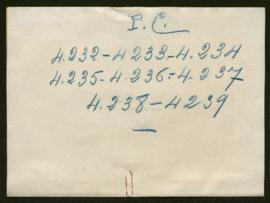 F.C.
4.232-4.233-4.234
4.235-4.236-4.237
4.238-4239